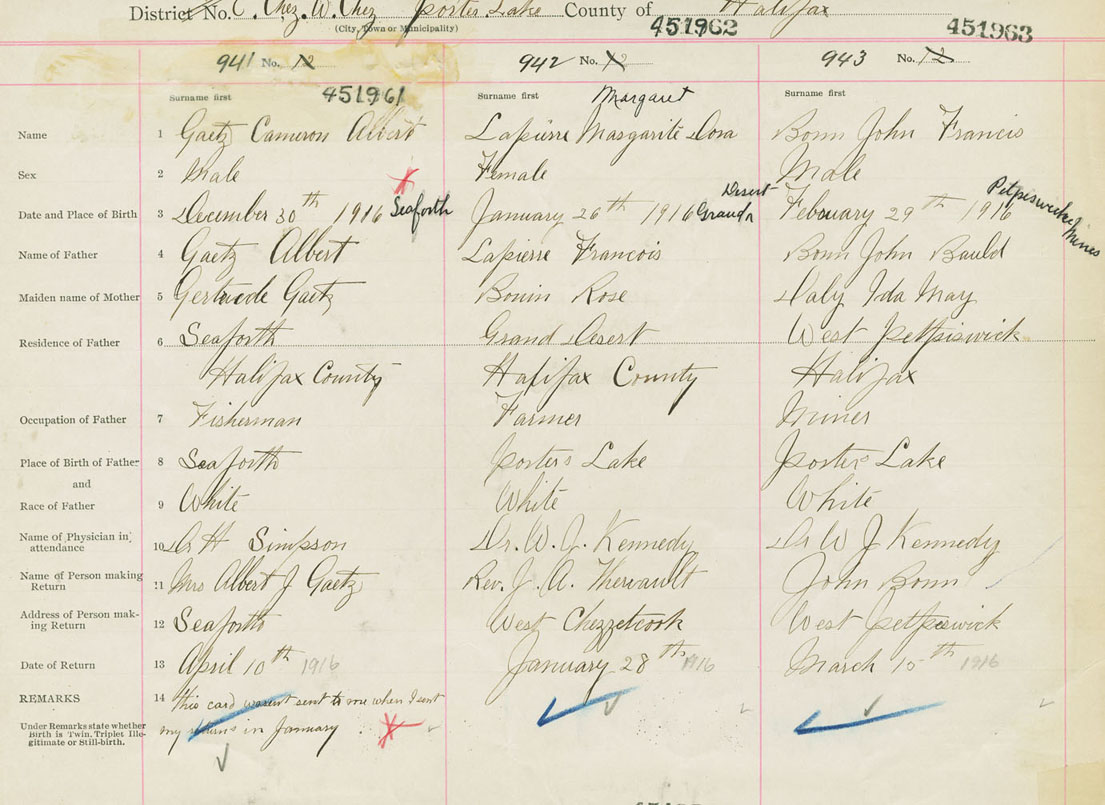 District No. C. Chez. W. Chez Porters Lake County of Halifax
(City, Town or Municipality)
451962 451963
941 No. 12 942 No. 12 943 No. 12
Surname first 451961 Surname first Margaret Surname first
Name 1 Gaetz Cameron Albert Lapierre Margarite Dora Bonn John Francis
Sex 2 Male Female Male
Desert Petpiswick
Date and Place of Birth 3 December 30th 1916 Seaforth January 26th 1916 Grand February 29th 1916 Mines
Name of Father 4 Gaetz Albert Lapierre Francois Bonn John Bauld
Maiden name of Mother 5 Gertrude Gaetz Bonin Rose Daly Ida May
Residence of Father 6 Seaforth Grand Desert West Petpiswick
Halifax County Halifax County Halifax
Occupation of Father 7 Fisherman Farmer Miner
Place of Birth of Father 8 Seaforth Porters Lake Porters Lake
and
Race of Father 9 White White White
Name of Physician in attendance 10 Dr H Simpson Dr. W. J. Kennedy Dr W J Kennedy
Name of Person making Return 11 Mrs Albert J Gaetz Rev. J. A. Theriault John Bonn
Address of Person making Return 12 Seaforth West Chezzetcook West Petpiswick
Date of Return 13 April 10th 1916 January 28th 1916 March 15th 1916
REMARKS 14 this card wasent sent to me when I sent
Under Remarks state whether Birth is Twin, Triplet Illegitimate or Still-birth. my returns in January